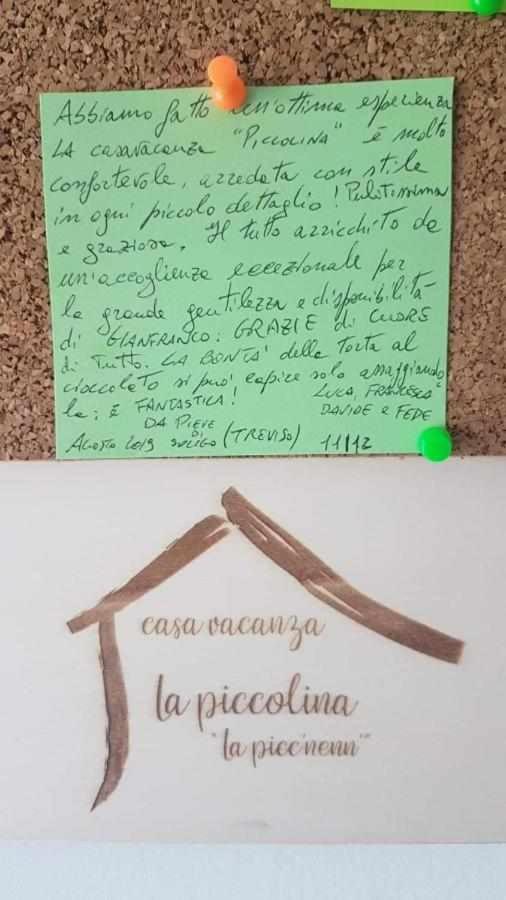 Abbiamo fatto un'ottima esperienza
LA casavacanza "PICCOLINA" è molto
confortevole, arredata con stile
in ogni piccolo dettaglio! Pulitissima
e graziosa. Il tutto arricchito da
un'accoglienza eccezionale per
la grande gentilezza e disponibilità
di GIANFRANCO: GRAZIE di CUORE
di Tutto. LA BONTA' della Torta al
cioccolato si può capire solo assaggiando
la: È FANTASTICA! LUCA, FRANCESCA
DA PIEVE DAVIDE e FEDE
DI
AGOSTO 2019 SOLIGO (TREVISO) 11/12
casa vacanza
la piccolina
"la picc'nenn"